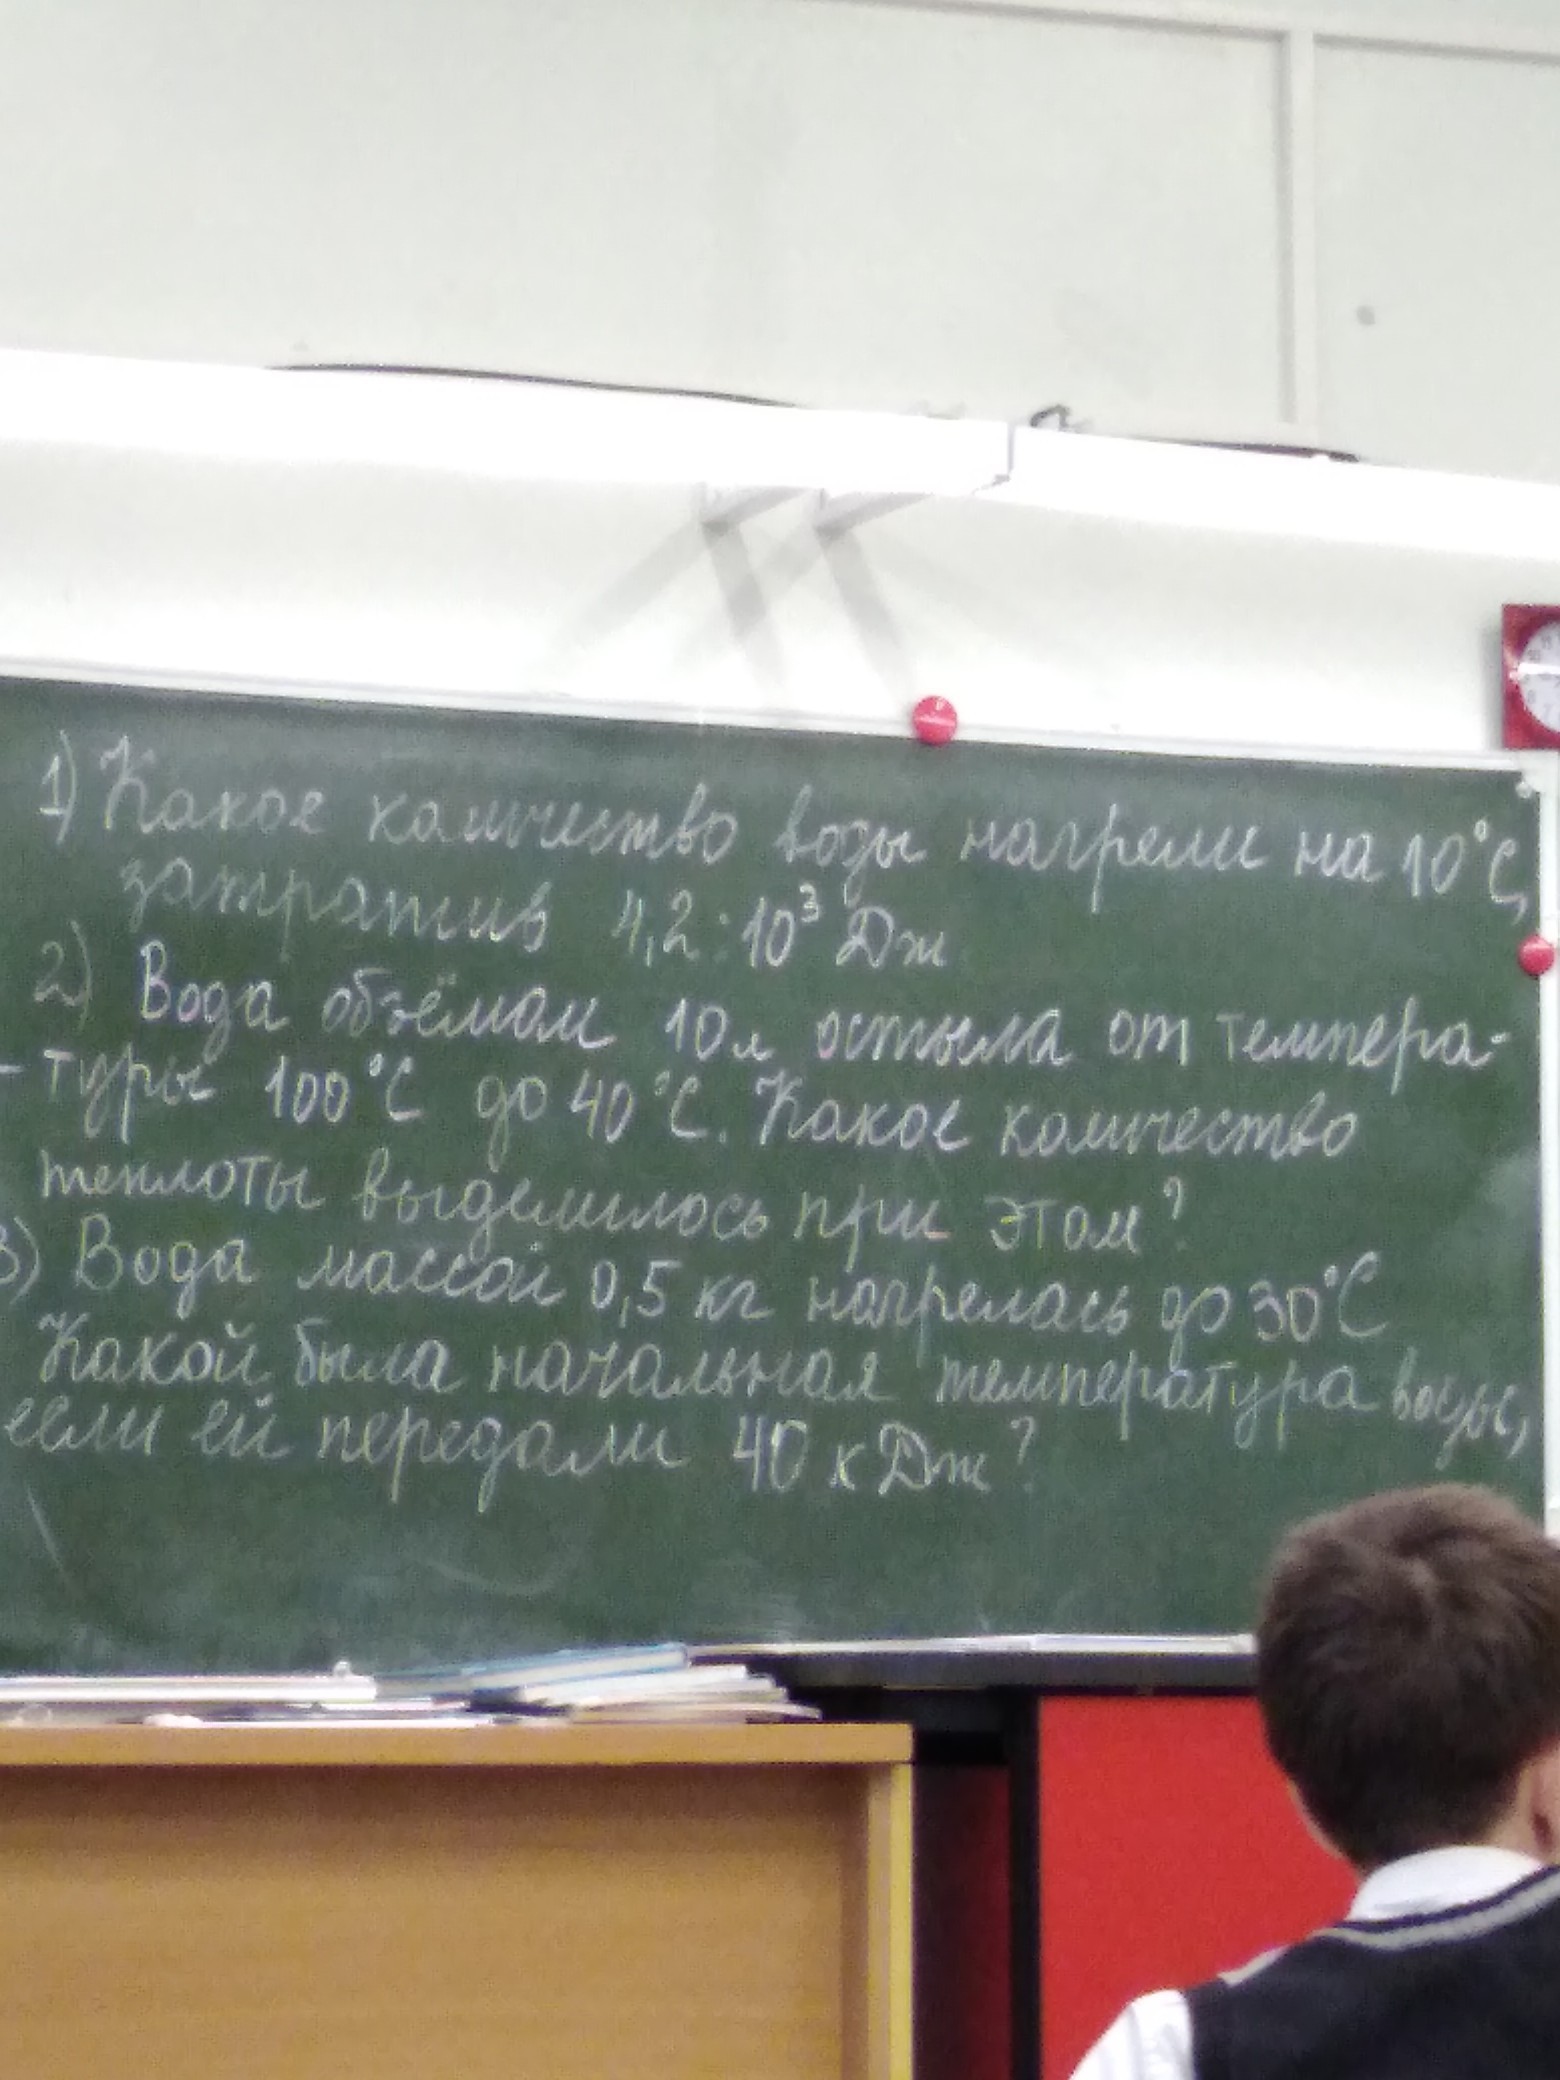 1) Какое количество воды нагрели на 10°C,
затратив 4,2 : 10³ Дж.
2) Вода обзёмом 10 л остыла от темпера-
- туры 100°C до 40°C. Какое количество
теплоты выделилось при этом?
3) Вода массой 0,5 кг нагрелась до 30°C
Какой была начальная температура воды,
если ей передали 40 кДж?